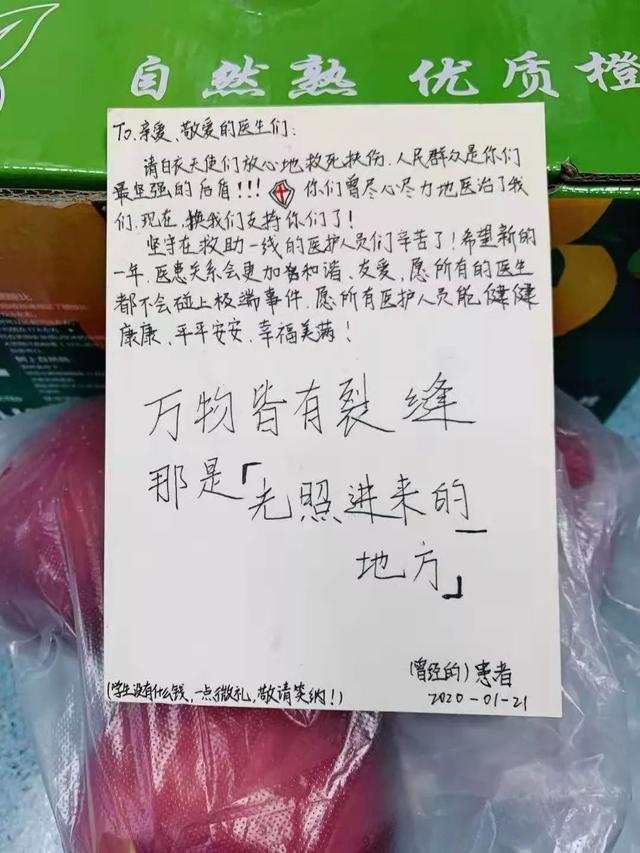 自然熟 优质橙
To.亲爱、敬爱的医生们:
请白衣天使们放心地救死扶伤.人民群众是你们
最坚强的后盾!!! 你们曾尽心尽力地医治了我
们.现在,换我们支持你们了!
坚守在救助一线的医护人员们辛苦了!希望新的
一年.医患关系会更加和谐、友爱.愿所有的医生
都不会碰上极端事件.愿所有医护人员能健健
康康、平平安安、幸福美满!
万物皆有裂缝
那是「光照进来的
地方」
(曾经的)患者
(学生没有什么钱,一点微礼,敬请笑纳!)
2020-01-21